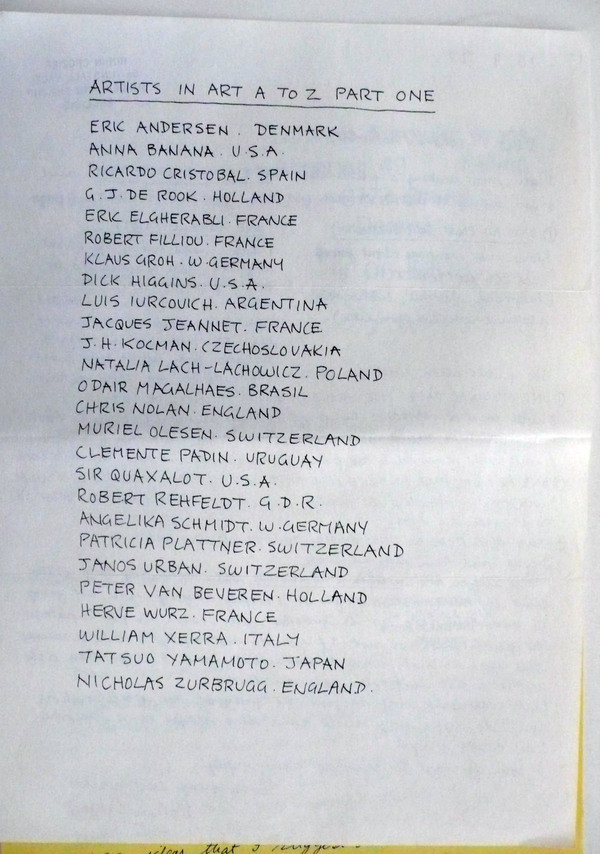 ARTISTS IN ART A TO Z PART ONE
ERIC ANDERSEN. DENMARK
ANNA BANANA. U.S.A.
RICARDO CRISTOBAL. SPAIN
G.J. DE ROOK. HOLLAND
ERIC ELGHERABLI. FRANCE
ROBERT FILLIOU. FRANCE
KLAUS GROH. W.GERMANY
DICK HIGGINS. U.S.A.
LUIS IURCOVICH. ARGENTINA
JACQUES JEANNET. FRANCE
J.H. KOCMAN. CZECHOSLOVAKIA
NATALIA LACH-LACHOWICZ. POLAND
ODAIR MAGALHAES. BRASIL
CHRIS NOLAN. ENGLAND
MURIEL OLESEN. SWITZERLAND
CLEMENTE PADIN. URUGUAY
SIR QUAXALOT. U.S.A.
ROBERT REHFELDT. G.D.R.
ANGELIKA SCHMIDT. W.GERMANY
PATRICIA PLATTNER. SWITZERLAND
JANOS URBAN. SWITZERLAND
PETER VAN BEVEREN. HOLLAND
HERVE WURZ. FRANCE
WILLIAM XERRA. ITALY
TATSUO YAMAMOTO. JAPAN
NICHOLAS ZURBRUGG. ENGLAND.
that I